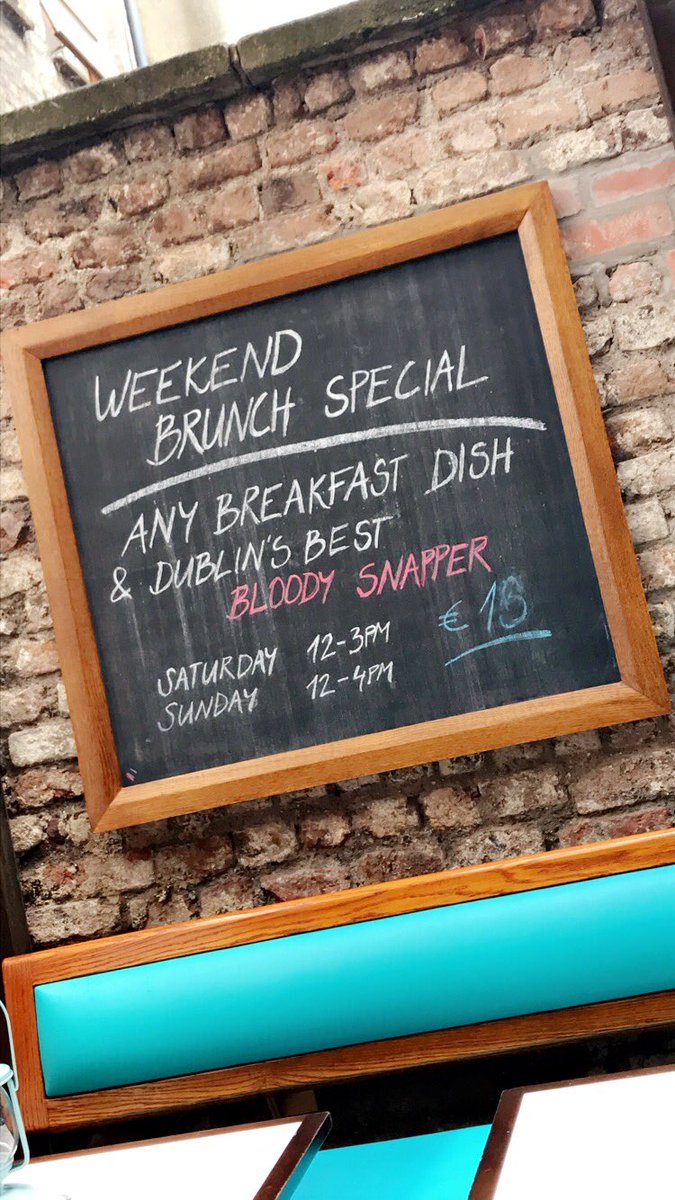 WEEKEND
BRUNCH SPECIAL
ANY BREAKFAST DISH
& DUBLIN'S BEST
BLOODY SNAPPER
€
SATURDAY 12-3PM
SUNDAY 12-4PM